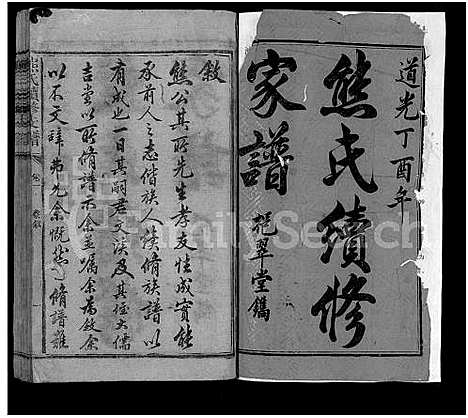 道光丁酉年
熊氏續修
家譜
挹翠堂鐫
敘
熊公其所先生孝友性成實能
承前人之志偕族人續脩族譜以
有成也一日其嗣君文淡及其侄大儒
吉堂以所脩譜示余並囑余為敘余
以不文辭弗允余慨然脩譜雖
熊氏續修家譜 卷一
FamilySearch